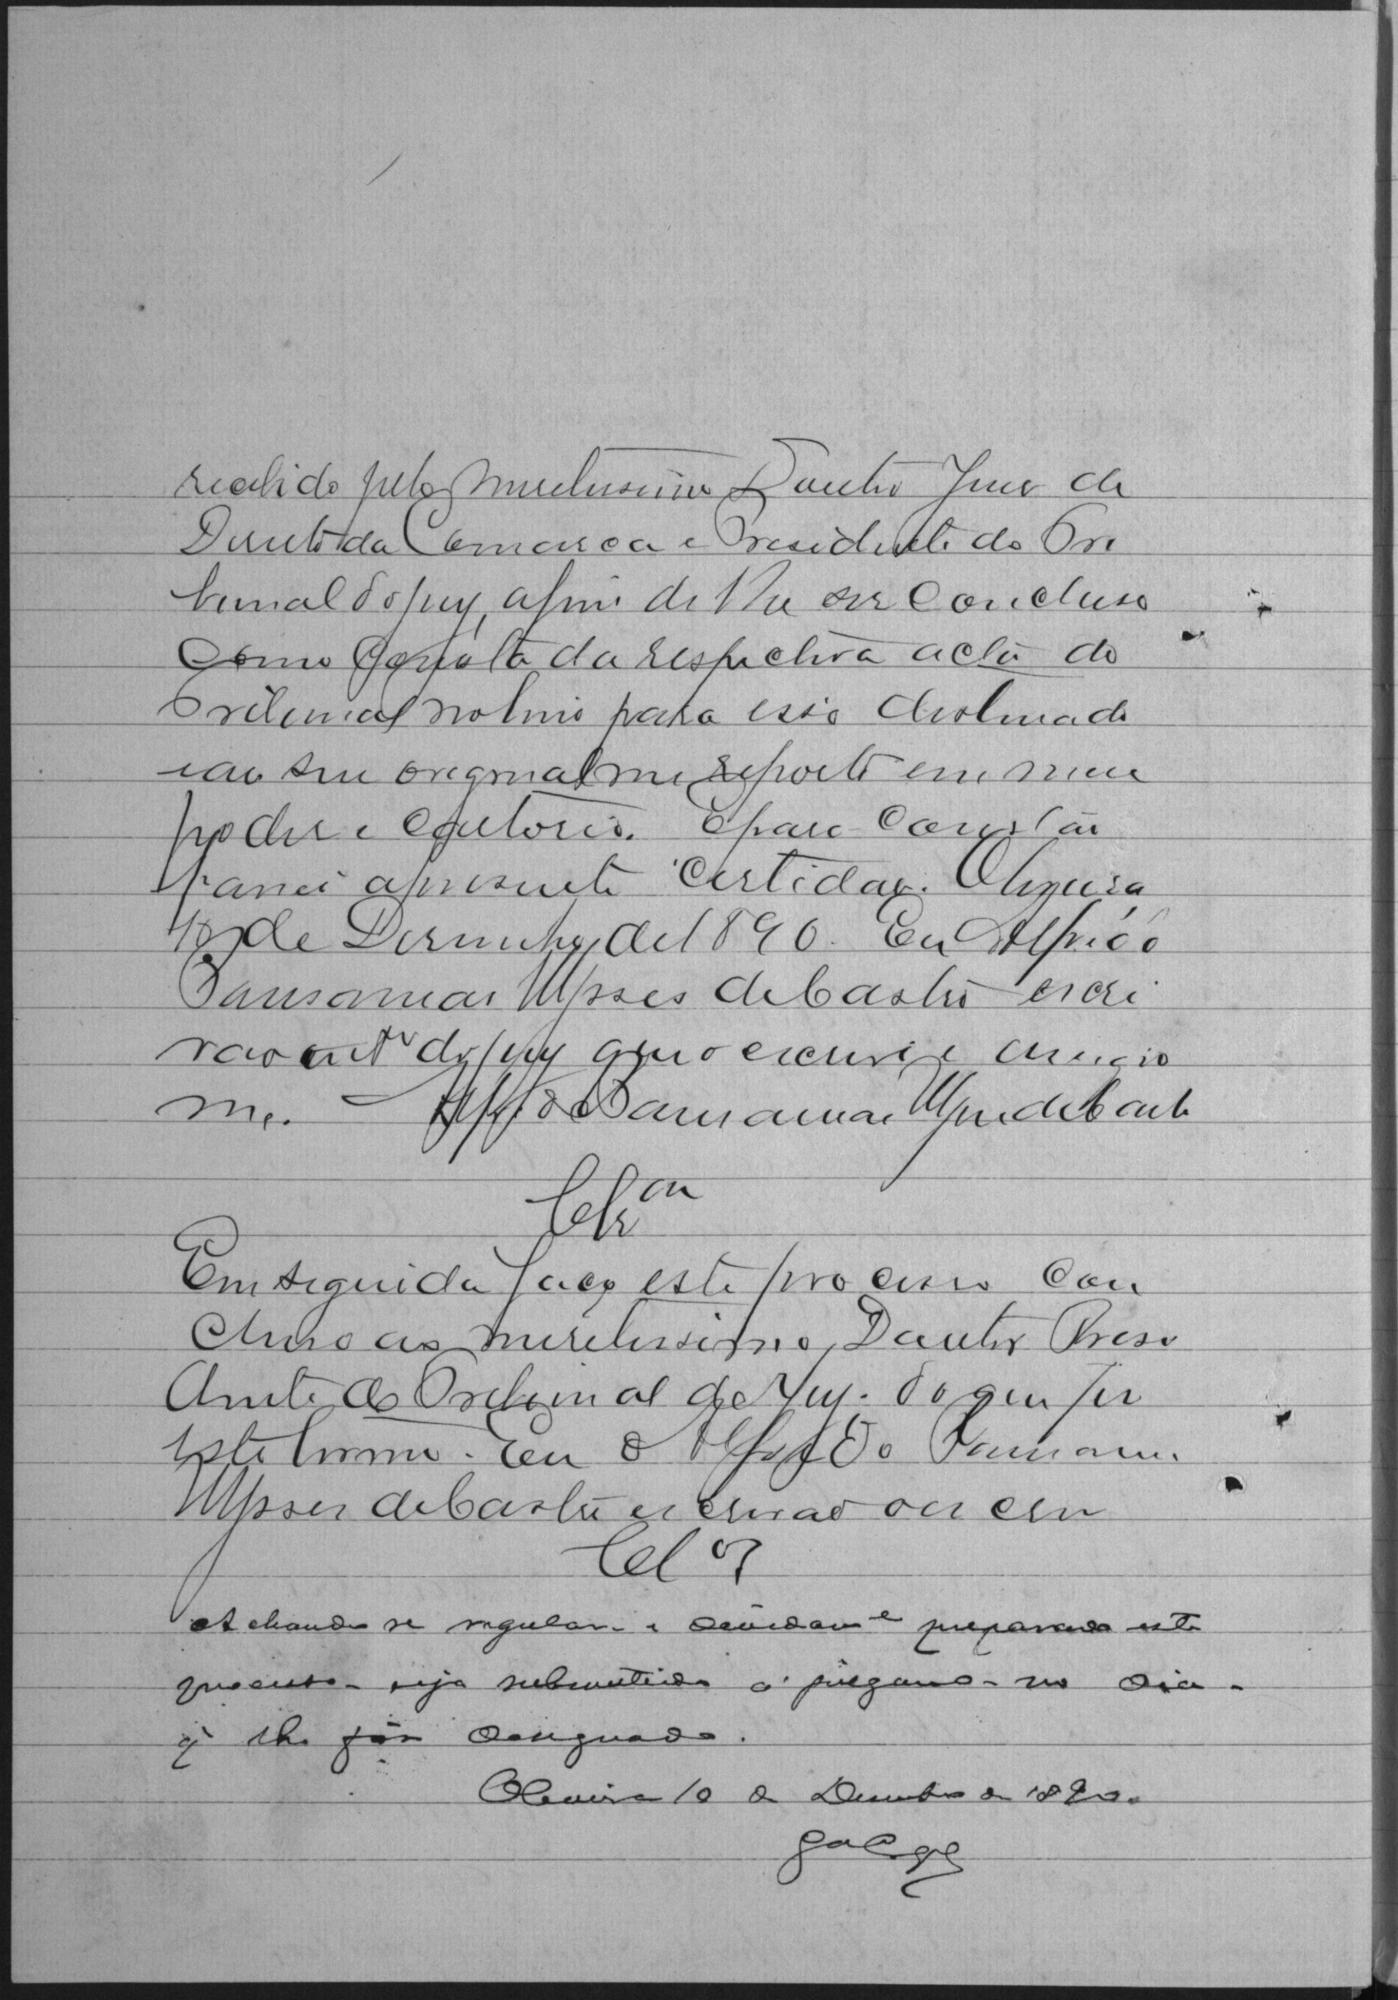 recebido pelo meretissimo Doutor Juiz de
Direito da Comarca e Presidente do Tri
bunal do jury, afim de lhe ser concluso
como consta da respectiva acta do
Tribunal no livro para esse destinado
ao seu original me reporto em meu
poder e cartorio. E para constar
passei a presente certidão. Oliveira,
10 de Dezembro de 1890. Eu Alfredo
Pausanias Ulysses de Castro escri
vão int.º do jury que o escrevi e assigno
me. Alfredo Pausanias Ulysses de Castro
Clsam
Em seguida faço este processo con
cluso ao meretissimo Doutor Presi
dente do Tribunal do Jury. do que fiz
este termo. Eu Alfredo Pausanias
Ulysses de Castro escrivão o escrevi
Cl.os
Achando se regular e devidam.e preparado este
processo seja submettido a julgam.o no dia
q̃ lhe fôr designado.
Oliveira 10 de Dezembro de 1890.